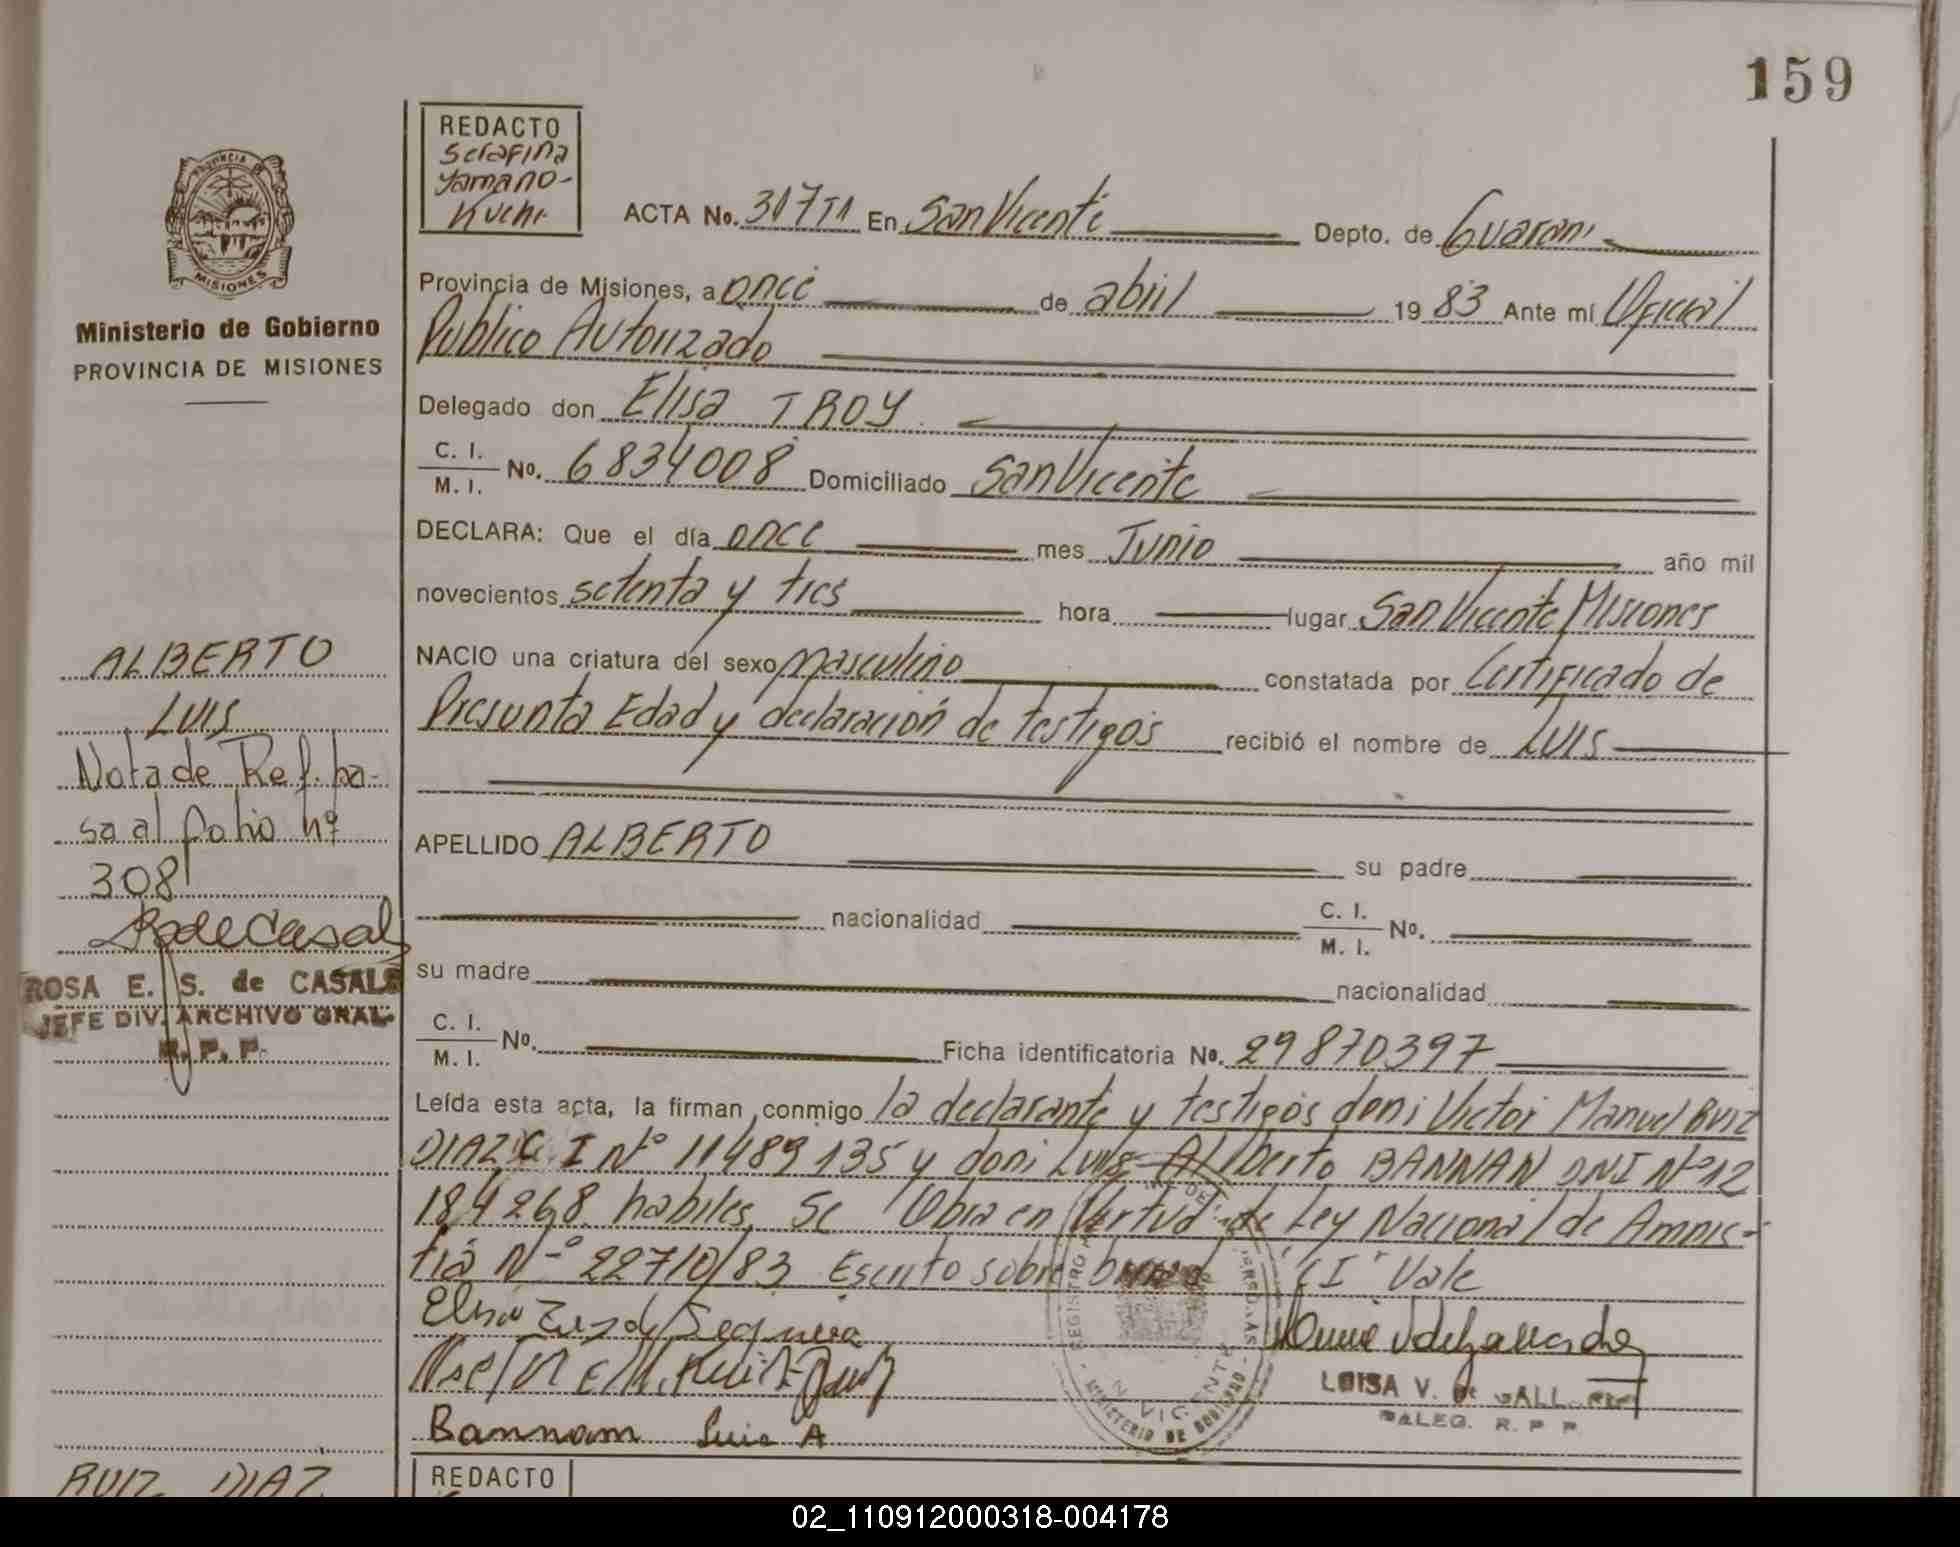 159
PROVINCIA DE
MISIONES
Ministerio de Gobierno
PROVINCIA DE MISIONES
ALBERTO
LUIS
Nota de Ref. pa-
sa al folio nº
308
ROSA E. S. de CASALS
JEFE DIV. ARCHIVO GRAL.
R. P. P.
RUIZ DIAZ
REDACTO
Serafina
Yamano-
Kuchi
ACTA No. 317 T1 En San Vicente Depto. de Guarani
Provincia de Misiones, a once de abril 1983 Ante mí Oficial
Publico Autorizado
Delegado don Elisa TROY
C. I.
M. I. No. 6834008 Domiciliado San Vicente
DECLARA: Que el día once mes Junio año mil
novecientos setenta y tres hora lugar San Vicente Misiones
NACIO una criatura del sexo masculino constatada por Certificado de
Presunta Edad y declaración de testigos recibió el nombre de LUIS
APELLIDO ALBERTO su padre
nacionalidad C. I.
M. I. No.
su madre nacionalidad
C. I.
M. I. No. Ficha identificatoria No. 29870397
Leída esta acta, la firman conmigo la declarante y testigos don: Victor Manuel RUIZ
DIAZ C I Nº 11489135 y don: Luis Alberto BANNAN DNI Nº 12
184268 habiles. Se Obra en Virtud de Ley Nacional de Amnis-
tía Nº 22710/83 Escrito sobre "CI" Vale
Bannam Luis A
LUISA V. de GALL
DALEG. R. P. P.
REGISTRO
SAN VICENTE
MINISTERIO DE GOBIERNO
REDACTO
02_110912000318-004178